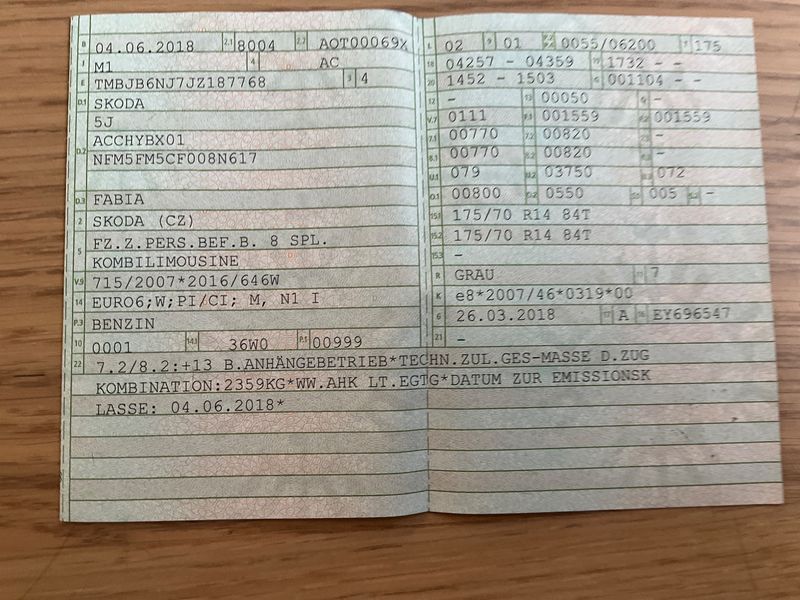 B 04.06.2018 2.1 8004 2.2 AOT00069X
J M1 4 AC
E TMBJB6NJ7JZ187768 3 4
D.1 SKODA
5J
D.2 ACCHYBX01
NFM5FM5CF008N617
D.3 FABIA
2 SKODA (CZ)
5 FZ.Z.PERS.BEF.B. 8 SPL.
KOMBILIMOUSINE
V.9 715/2007*2016/646W
14 EURO6;W;PI/CI; M, N1 I
P.3 BENZIN
10 0001 14.1 36W0 P.1 00999
L 02 9 01 P.2 P.4 0055/06200 T 175
18 04257 - 04359 19 1732 - -
20 1452 - 1503 G 001104 - -
12 - 13 00050 Q -
V.7 0111 F.1 001559 F.2 001559
7.1 00770 7.2 00820 7.3 -
8.1 00770 8.2 00820 8.3 -
U.1 079 U.2 03750 U.3 072
O.1 00800 O.2 0550 S.1 005 S.2 -
15.1 175/70 R14 84T
15.2 175/70 R14 84T
15.3 -
R GRAU 11 7
K e8*2007/46*0319*00
6 26.03.2018 17 A 16 EY696547
21 -
22 7.2/8.2:+13 B.ANHÄNGEBETRIEB*TECHN.ZUL.GES-MASSE D.ZUG
KOMBINATION:2359KG*WW.AHK LT.EGTG*DATUM ZUR EMISSIONSK
LASSE: 04.06.2018*